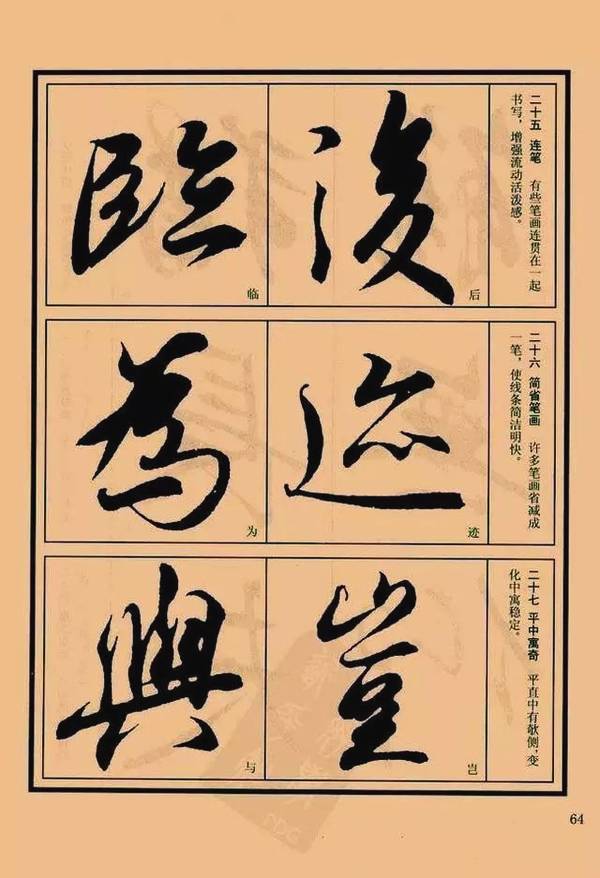 二十五 连笔　有些笔画连贯在一起
书写，增强流动活泼感。
後
后
臨
临
二十六 简省笔画　许多笔画省减成
一笔，使线条简洁明快。
迹
迹
為
为
二十七 平中寓奇　平直中有欹侧，变
化中寓稳定。
豈
岂
與
与
64